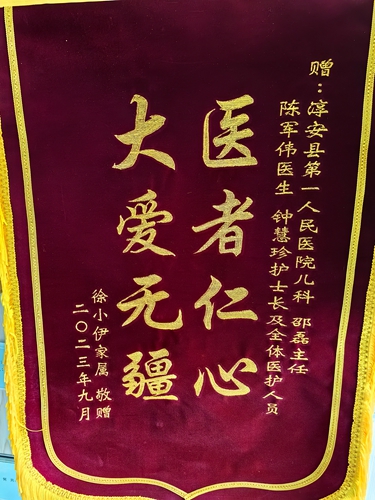 赠：淳安县第一人民医院儿科 邵磊主任
陈军伟医生 钟慧珍护士长及全体医护人员
医者仁心
大爱无疆
徐小伊家属 敬赠
二〇二三年九月